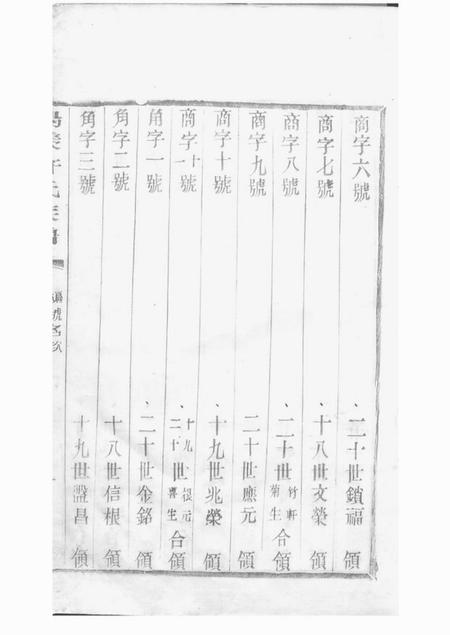 商字六號 二十世鎖福 領
商字七號 十八世文榮 領
商字八號 二十世竹軒菊生合領
商字九號 二十世應元 領
商字十號 十九世兆榮 領
商字十一號 十九二十世根元壽生合領
角字一號 二十世金銘 領
角字二號 十八世信根 領
角字三號 十九世盤昌 領
編號名次